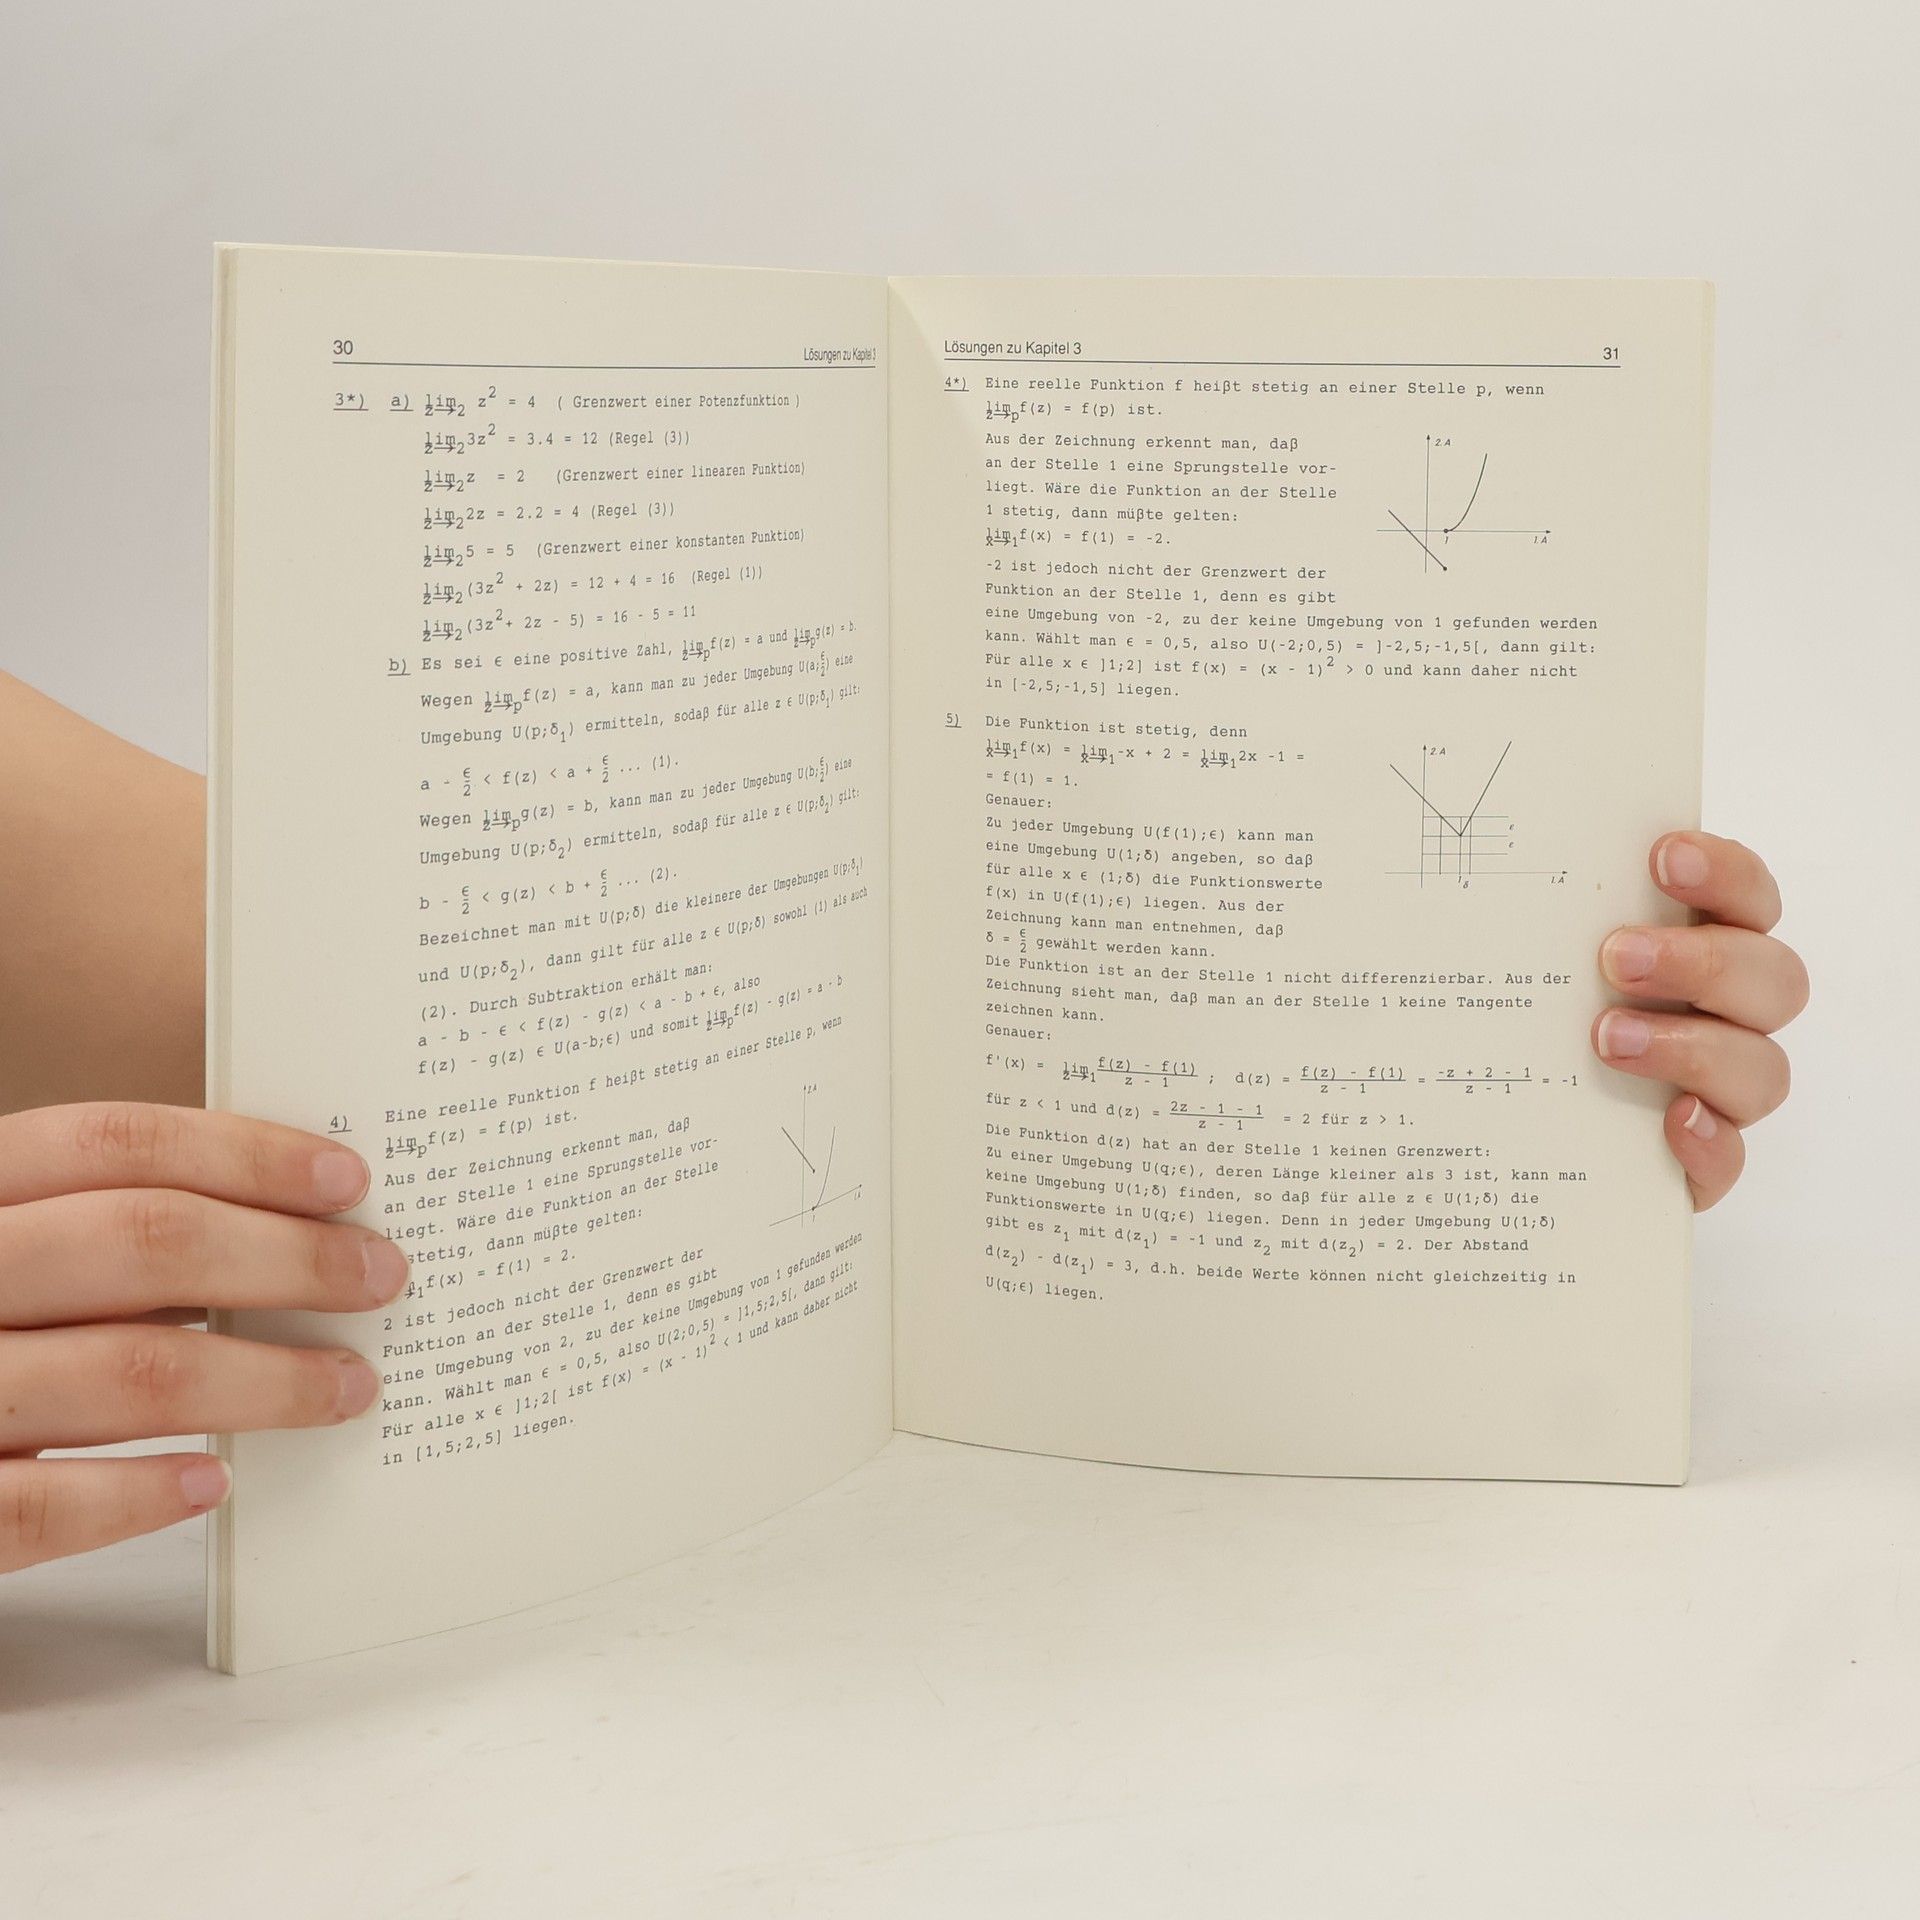 30
Lösungen zu Kapitel 3
3*) a) lim z→2 z² = 4 ( Grenzwert einer Potenzfunktion )
lim z→2 3z² = 3.4 = 12 (Regel (3))
lim z→2 z = 2 (Grenzwert einer linearen Funktion)
lim z→2 2z = 2.2 = 4 (Regel (3))
lim z→2 5 = 5 (Grenzwert einer konstanten Funktion)
lim z→2 (3z² + 2z) = 12 + 4 = 16 (Regel (1))
lim z→2 (3z²+ 2z - 5) = 16 - 5 = 11
b) Es sei ϵ eine positive Zahl, lim z→p f(z) = a und lim z→p g(z) = b.
Wegen lim z→p f(z) = a, kann man zu jeder Umgebung U(a;ϵ/2) eine
Umgebung U(p;δ₁) ermitteln, sodaß für alle z ϵ U(p;δ₁) gilt:
a - ϵ/2 < f(z) < a + ϵ/2 ... (1).
Wegen lim z→p g(z) = b, kann man zu jeder Umgebung U(b;ϵ/2) eine
Umgebung U(p;δ₂) ermitteln, sodaß für alle z ϵ U(p;δ₂) gilt:
b - ϵ/2 < g(z) < b + ϵ/2 ... (2).
Bezeichnet man mit U(p;δ) die kleinere der Umgebungen U(p;δ₁)
und U(p;δ₂), dann gilt für alle z ϵ U(p;δ) sowohl (1) als auch
(2). Durch Subtraktion erhält man:
a - b - ϵ < f(z) - g(z) < a - b + ϵ, also
f(z) - g(z) ϵ U(a-b;ϵ) und somit lim z→p f(z) - g(z) = a - b
4) Eine reelle Funktion f heißt stetig an einer Stelle p, wenn
lim z→p f(z) = f(p) ist.
Aus der Zeichnung erkennt man, daß
an der Stelle 1 eine Sprungstelle vor-
liegt. Wäre die Funktion an der Stelle
stetig, dann müßte gelten:
→1 f(x) = f(1) = 2.
2 ist jedoch nicht der Grenzwert der
Funktion an der Stelle 1, denn es gibt
eine Umgebung von 2, zu der keine Umgebung von 1 gefunden werden
kann. Wählt man ϵ = 0,5, also U(2;0,5) = ]1,5;2,5[, dann gilt:
Für alle x ϵ ]1;2[ ist f(x) = (x - 1)² < 1 und kann daher nicht
in [1,5;2,5] liegen.
2.A
1.A
1
Lösungen zu Kapitel 3
31
4*) Eine reelle Funktion f heißt stetig an einer Stelle p, wenn
lim z→p f(z) = f(p) ist.
Aus der Zeichnung erkennt man, daß
an der Stelle 1 eine Sprungstelle vor-
liegt. Wäre die Funktion an der Stelle
1 stetig, dann müßte gelten:
lim x→1 f(x) = f(1) = -2.
-2 ist jedoch nicht der Grenzwert der
Funktion an der Stelle 1, denn es gibt
eine Umgebung von -2, zu der keine Umgebung von 1 gefunden werden
kann. Wählt man ϵ = 0,5, also U(-2;0,5) = ]-2,5;-1,5[, dann gilt:
Für alle x ϵ ]1;2] ist f(x) = (x - 1)² > 0 und kann daher nicht
in [-2,5;-1,5] liegen.
2.A
1
1.A
5) Die Funktion ist stetig, denn
lim x→1 f(x) = lim x→1 -x + 2 = lim x→1 2x -1 =
= f(1) = 1.
Genauer:
Zu jeder Umgebung U(f(1);ϵ) kann man
eine Umgebung U(1;δ) angeben, so daß
für alle x ϵ (1;δ) die Funktionswerte
f(x) in U(f(1);ϵ) liegen. Aus der
Zeichnung kann man entnehmen, daß
δ = ϵ/2 gewählt werden kann.
2.A
ϵ
ϵ
1 δ
1.A
Die Funktion ist an der Stelle 1 nicht differenzierbar. Aus der
Zeichnung sieht man, daß man an der Stelle 1 keine Tangente
zeichnen kann.
Genauer:
f'(x) = lim z→1 (f(z) - f(1))/(z - 1) ; d(z) = (f(z) - f(1))/(z - 1) = (-z + 2 - 1)/(z - 1) = -1
für z < 1 und d(z) = (2z - 1 - 1)/(z - 1) = 2 für z > 1.
Die Funktion d(z) hat an der Stelle 1 keinen Grenzwert:
Zu einer Umgebung U(q;ϵ), deren Länge kleiner als 3 ist, kann man
keine Umgebung U(1;δ) finden, so daß für alle z ϵ U(1;δ) die
Funktionswerte in U(q;ϵ) liegen. Denn in jeder Umgebung U(1;δ)
gibt es z₁ mit d(z₁) = -1 und z₂ mit d(z₂) = 2. Der Abstand
d(z₂) - d(z₁) = 3, d.h. beide Werte können nicht gleichzeitig in
U(q;ϵ) liegen.